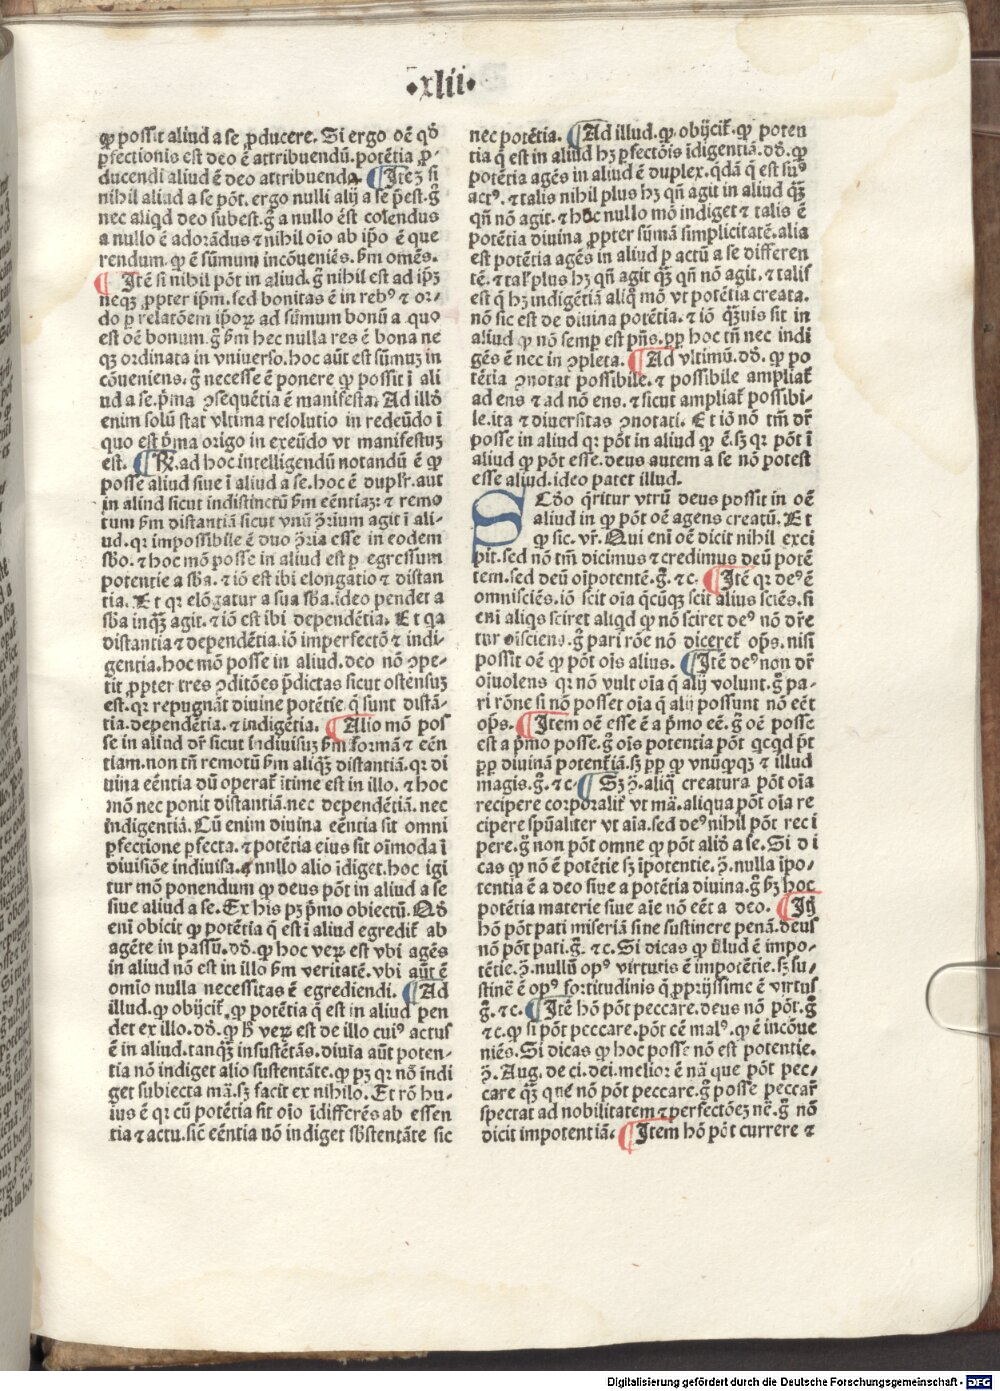 ·xlii·
ꝙ possit aliud a se ꝓducere. Si ergo oē qđ
ꝑfectionis est deo ē attribuendū. potētia ꝓ-
ducendi aliud ē deo attribuenda. ¶ Itē si
nihil aliud a se pōt. ergo nulli alij a se p̄est. g̊
nec aliqd deo subest. g̊ a nullo ēst colendus
a nullo ē adorādus ⁊ nihil oīo ab ip̄o ē que
rendum. ꝙ ē sūmum incōueniēs. ẜm omēs.
¶ Itē si nihil pōt in aliud. g̊ nihil est ad ip̄ꝫ
neqꝫ ꝓpter ip̄m. sed bonitas ē in rebꝰ ⁊ or-
do ꝑ relatōem ip̄oꝝ ad sūmum bonū a quo
est oē bonum. g̊ ẜm hec nulla res ē bona ne
qꝫ ordinata in vniuerso. hoc aūt est sūmuꝫ in
cōueniens. g̊ necesse ē ponere ꝙ possit ī ali
ud a se. p̄ma ꝯsequētia ē manifesta. Ad illđ
enim solū stat vltima resolutio in redeūdo ī
quo est p̄ma origo in exeūdo vt manifestuꝫ
est. ¶ Rx̄. ad hoc intelligendū notandū ē ꝙ
posse aliud siue ī aliud a se. hoc ē duplr̄. aut
in aliud sicut indistinctū ẜm eēntiaꝫ: ⁊ remo
tum ẜm distantiā sicut vnū ꝯ̄rium agit ī ali-
ud. qr impossibile ē duo ꝯ̄ria esse in eodem
sb̄o. ⁊ hoc mō posse in aliud est ꝑ egressum
potentie a sb̄a. ⁊ iō est ibi elongatio ⁊ distan
tia. Et qr elōgatur a sua sb̄a. ideo pendet a
sb̄a inqꝫ agit. ⁊ iō est ibi dependētia. Et qa
distantia ⁊ dependētia. iō imperfectō ⁊ indi-
gentia. hoc mō posse in aliud. deo nō ꝯpe-
tit ꝓpter tres ꝯditōes p̄dictas sicut ostensuꝫ
est. qr repugnāt diuine potētie q̄ sunt distā-
tia. dependētia. ⁊ indigētia. ¶ Alio mō pos
se in aliud dr̄ sicut indiuisuꝫ ẜm formā ⁊ eēn
tiam. non tn̄ remotū ẜm aliqꝫ distantiā. qr di
uina eēntia dū operat̄ ītime est in illo. ⁊ hoc
mō nec ponit distantiā. nec dependētiā. nec
indigentiā. Cū enim diuina eēntia sit omni
ꝑfectione ꝑfecta. ⁊ potētia eius sit oīmoda ī
diuisiōe indiuisa. ⁊ nullo alio īdiget. hoc igi
tur mō ponendum ꝙ deus pōt in aliud a se
siue aliud a se. Ex his pꝫ p̄mo obiectū. Qđ
eni obicit ꝙ potētia q̄ est ī aliud egredit̄ ab
agēte in passū. dđ. ꝙ hoc veꝝ est vbi agēs
in aliud nō est in illo ẜm veritatē. vbi aūt ē
omīo nulla necessitas ē egrediendi. ¶ Ad
illud. ꝙ obijcit̄. ꝙ potētia q̄ est in aliud pen
det ex illo. dđ. ꝙ h̄ veꝝ est de illo cuiꝰ actus
ē in aliud. tanqꝫ insustētās. diuīa aūt poten-
tia nō indiget alio sustentāte. ꝙ pꝫ qr nō indi
get subiecta mā. sꝫ facit ex nihilo. Et rō hu-
ius ē qr cū potētia sit oīo īdifferēs ab essen
tia ⁊ actu. sic̄ eēntia nō indiget sb̄stentāte sic
nec potētia. ¶ Ad illud. ꝙ. obijcit̄. ꝙ poten
tia q̄ est in aliud hꝫ ꝑfectōis īdigentiā. dđ. ꝙ
potētia agēs in aliud ē duplex. qdā q̄ est suꝰ
actꝰ. ⁊ talis nihil plus hꝫ qn̄ agit in aliud qꝫ
qn̄ nō agit. ⁊ hoc nullo mō indiget ⁊ talis ē
potētia diuina ꝓpter sūmā simplicitatē. alia
est potētia agēs in aliud ꝑ actū a se differen
tē. ⁊ tal̄ plus hꝫ qn̄ agit qꝫ qn̄ nō agit. ⁊ talis
est q̄ hꝫ indigētiā aliq̄ mō vt potētia creata.
nō sic est de diuina potētia. ⁊ iō qꝫuis sit in
aliud ꝙ nō semꝑ est pn̄s. ꝓp̄ hoc tn̄ nec indi
gēs ē nec in ꝯpleta. ¶ Ad vltimū. dđ. ꝙ po
tētia ꝯnotat possibile. ⁊ possibile ampliat̄
ad ens ⁊ ad nō ens. ⁊ sicut ampliat̄ possibi-
le. ita ⁊ diuersitas ꝯnotati. Et iō nō tm̄ dr̄
posse in aliud qr pōt in aliud ꝙ ē. sꝫ qr pōt ī
aliud ꝙ pōt esse. deus autem a se nō potest
esse aliud. ideo patet illud.
SCđo q̄ritur vtrū deus possit in oē
aliud in ꝙ pōt oē agens creatū. Et
ꝙ sic. vr̄. Qui eni oē dicit nihil exci
pit. sed nō tm̄ dicimus ⁊ credimus deū potē
tem. sed deū oīpotentē. g̊. ⁊c. ¶ Itē qr deꝰ ē
omnisciēs. iō scit oīa qcūqꝫ scit alius sciēs. si
eni aliqs sciret aliqd ꝙ nō sciret deꝰ nō dr̄e
tur oīsciens. g̊ pari rōe nō diceret̄ op̄s. nisi
possit oē ꝙ pōt oīs alius. ¶ Itē deꝰ non dr̄
oīuolens qr nō vult oīa q̄ alij volunt. g̊ pa-
ri rōne si nō posset oīa q̄ alij possunt nō eēt
op̄s. ¶ Item oē esse ē a p̄mo eē. g̊ oē posse
est a p̄mo posse. g̊ oīs potentia pōt qcqd p̄t
ꝓp̄ diuinā potentiā. sꝫ ꝓp̄ ꝙ vnūqꝙqꝫ ⁊ illud
magis. g̊. ⁊c. ¶ Sꝫ ꝯ̄. aliq̄ creatura pōt oīa
recipere corporalit̄ vt mā. aliqua pōt oīa re
cipere sp̄ualiter vt aīa. sed deꝰ nihil pōt reci
pere. g̊ non pōt omne ꝙ pōt aliđ a se. Si di
cas ꝙ nō ē potētie sꝫ īpotentie. ꝯ̄. nulla īpo-
tentia ē a deo siue a potētia diuina. g̊ ẜꝫ hoc
potētia materie siue aīe nō eēt a deo. ¶ Itē
hō pōt pati miseriā sine sustinere penā. deus
nō pōt pati. g̊. ⁊c. Si dicas ꝙ illud ē impo-
tētie. ꝯ̄. nullū opꝰ virtutis ē impotētie. sꝫ su-
stinē ē opꝰ fortitudinis q̄ ꝓprijssime ē virtus
g̊. ⁊c. ¶ Itē hō pōt peccare. deus nō pōt. g̊
⁊c. ꝙ si pōt peccare. pōt eē malꝰ. ꝙ ē incōue
niēs. Si dicas ꝙ hoc posse nō est potentie.
ꝯ̄. Aug. de ci. dei. melior ē nā que pōt pec-
care qꝫ que nō pōt peccare. g̊ posse peccar̄
spectat ad nobilitatem ⁊ perfectōeꝫ nē. g̊ nō
dicit impotentiā. ¶ Item hō pōt currere ⁊
Digitalisierung gefördert durch die Deutsche Forschungsgemeinschaft - DFG